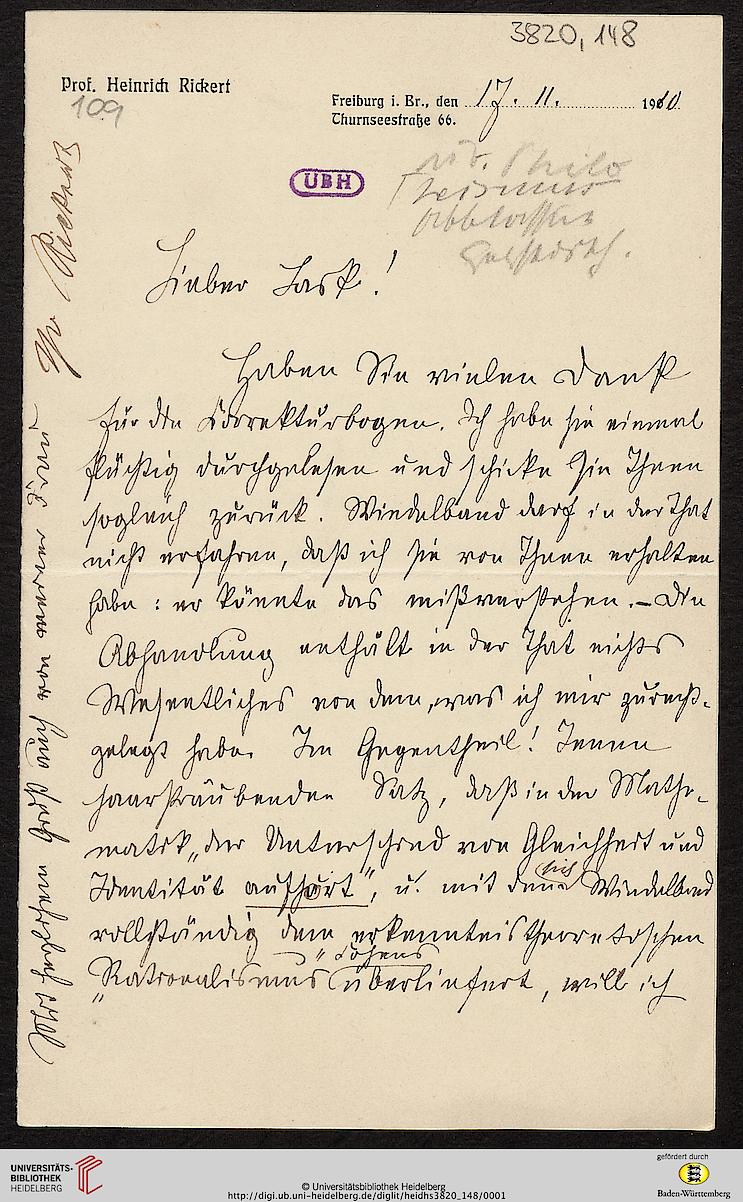 3820, 148
Prof. Heinrich Rickert
109
Freiburg i. Br., den 17. 11. 1910
Thurnseestraße 66.
UBH
Lieber Lask!
Haben Sie vielen Dank
für die Korrekturbogen. Ich habe sie einmal
flüchtig durchgelesen und schicke sie Ihnen
sogleich zurück. Windelband darf in der That
nicht erfahren, daß ich sie von Ihnen erhalten
habe: er könnte das mißverstehen. – Die
Abhandlung enthält in der That nichts
Wesentliches von dem, was ich mir zurecht-
gelegt habe. Im Gegentheil! Jenen
haarsträubenden Satz, daß in der Mathe-
matik „der Unterschied von Gleichheit und
Identität aufhört", u. mit dem sich Windelband
vollständig dem erkenntnistheoretischen
„Rationalismus" Cohens überliefert, will ich
Ihr Rickert
von meiner Frau
UNIVERSITÄTS-
BIBLIOTHEK
HEIDELBERG
© Universitätsbibliothek Heidelberg
http://digi.ub.uni-heidelberg.de/diglit/heidhs3820_148/0001
gefördert durch
Baden-Württemberg